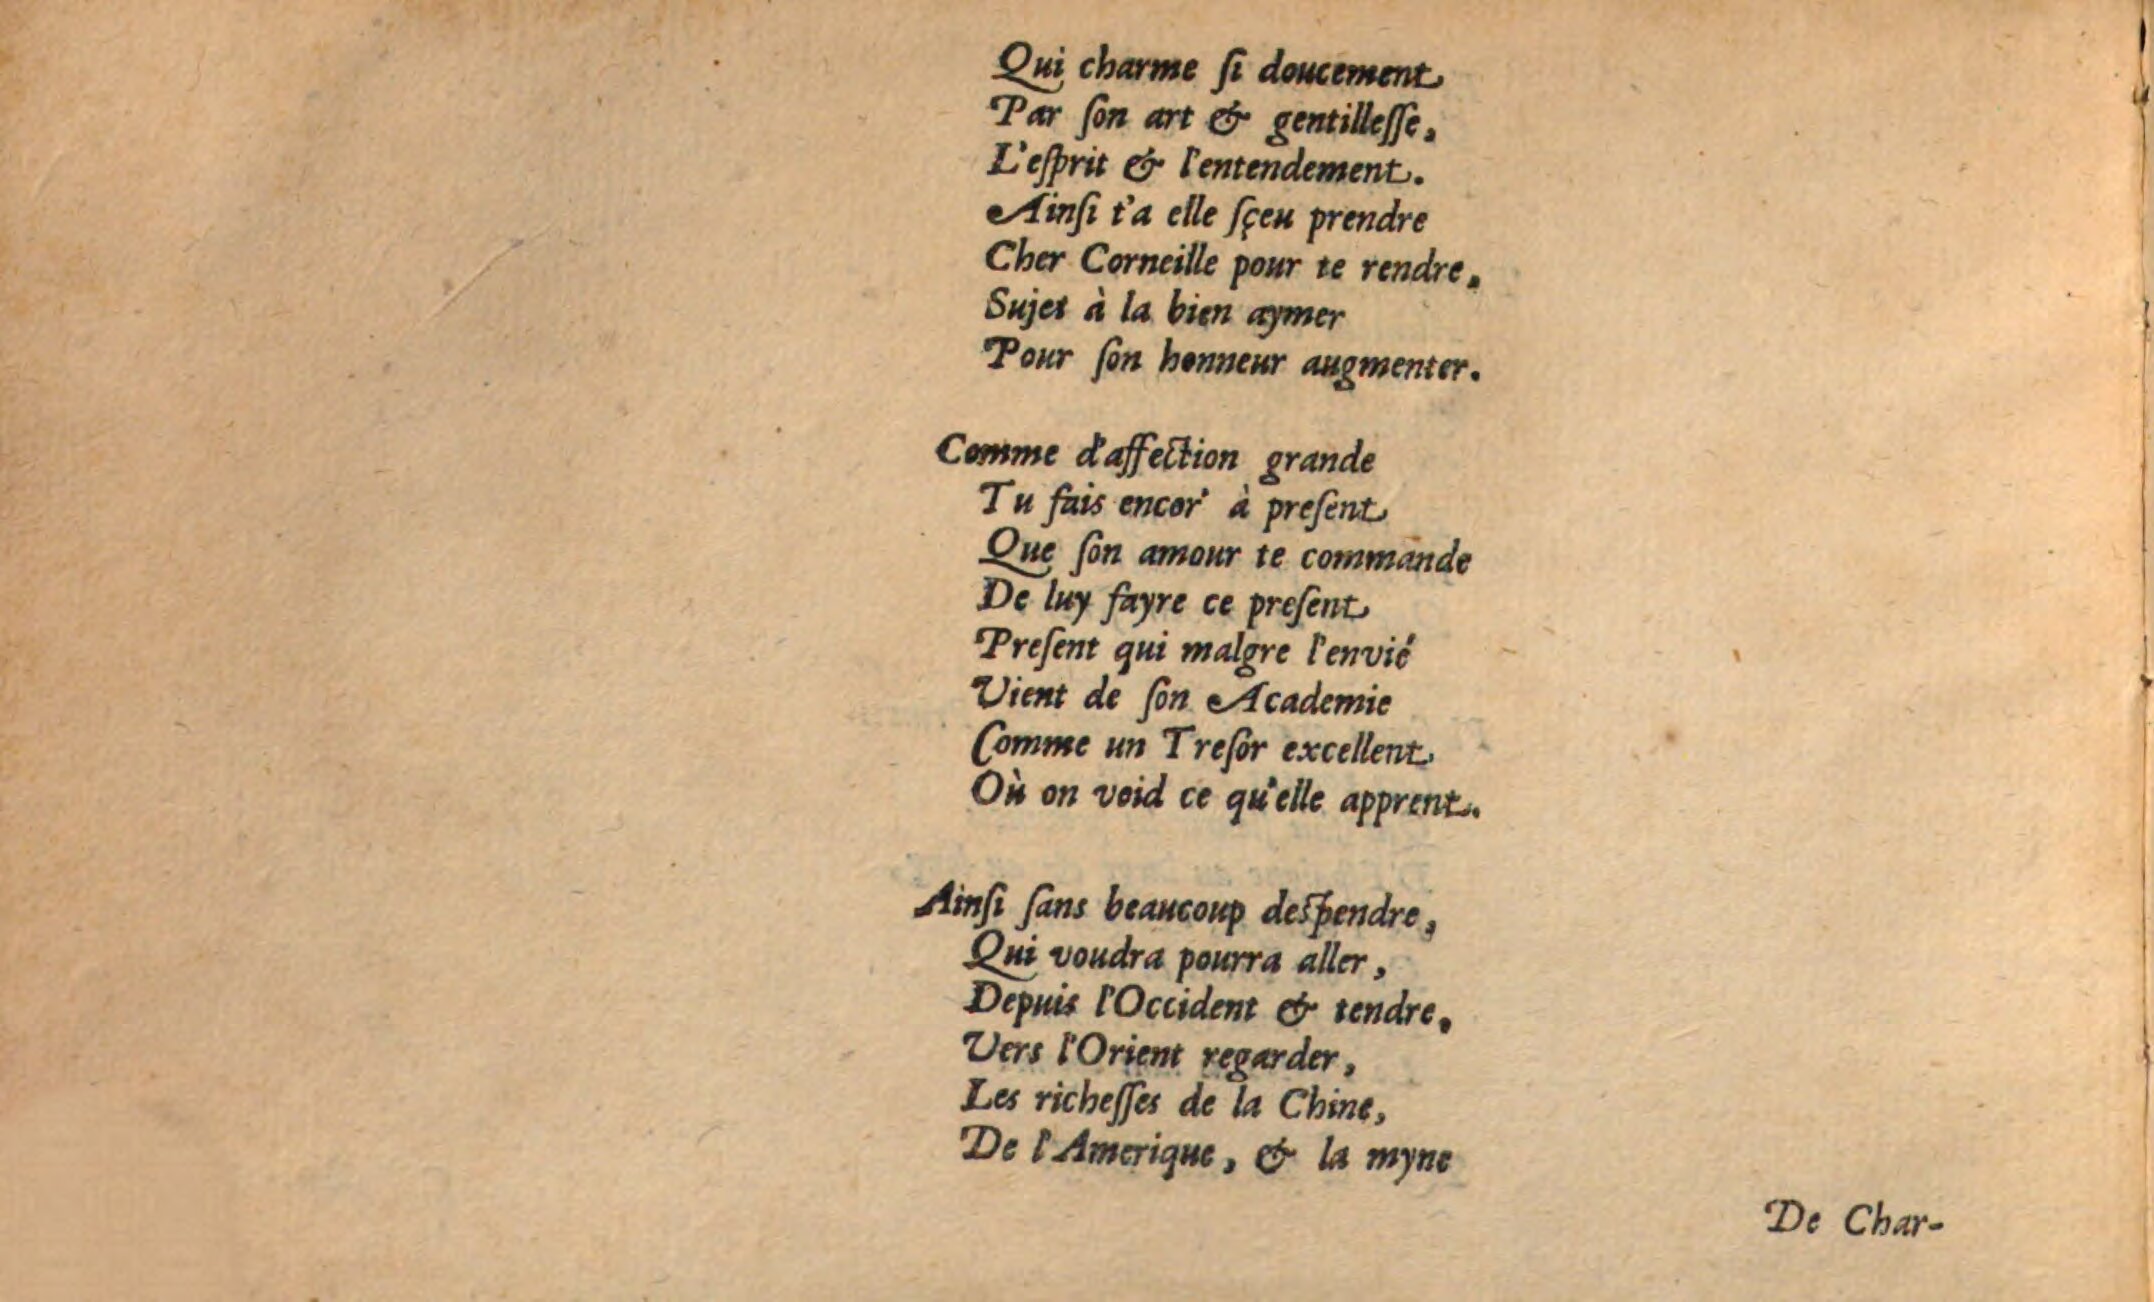 Qui charme ſi doucement
Par ſon art & gentilleſſe,
L'eſprit & l'entendement.
Ainſi t'a elle ſçeu prendre
Cher Corneille pour te rendre,
Sujet à la bien aymer
Pour ſon honneur augmenter.
Comme d'affection grande
Tu fais encor' à preſent
Que ſon amour te commande
De luy fayre ce preſent
Preſent qui malgre l'envié
Vient de ſon Academie
Comme un Treſor excellent
Où on void ce qu'elle apprent.
Ainſi ſans beaucoup deſpendre,
Qui voudra pourra aller,
Depuis l'Occident & tendre,
Vers l'Orient regarder,
Les richeſſes de la Chine,
De l'Amerique, & la myne
De Char-